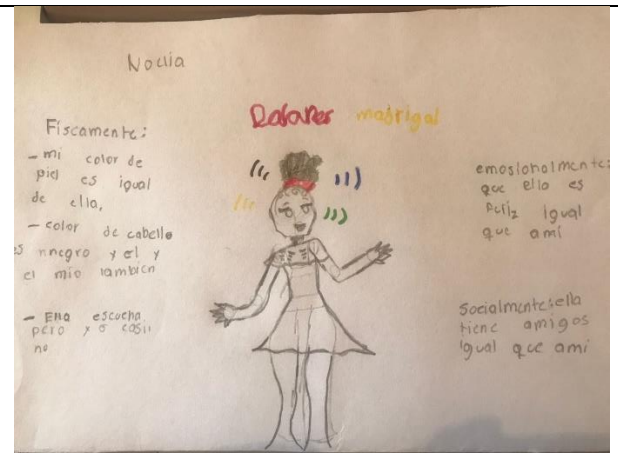 Noelia
Dolores madrigal
Fiscamente:
- mi color de
piel es igual
de ella,
- color de cabello
es nnegro y el y
el mio tambien
- Ella escucha
pero yo casii
no
emosionolmente:
que ella es
feliz igual
que ami
Socialmente: ella
tiene amigos
igual que ami